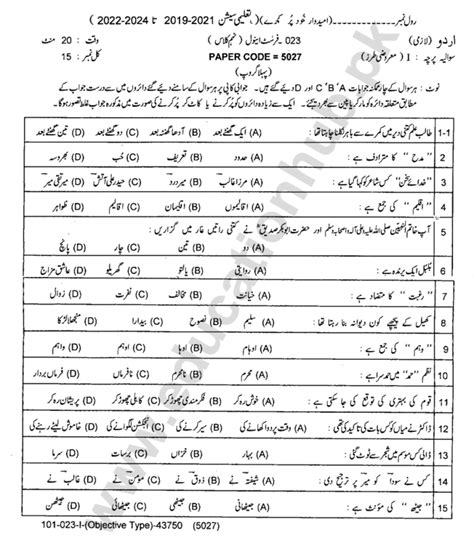 رول نمبر ـــــــــــــ (امیدوار خود پُر کرے) (تعلیمی سیشن 2021-2019 تا 2024-2022)
اردو (لازمی) 023-فرسٹ اینول (نہم کلاس) وقت : 20 منٹ
سوالیہ پرچہ : I (معروضی طرز) PAPER CODE = 5027 کل نمبر : 15
(پہلا گروپ)
نوٹ : ہر سوال کے چار ممکنہ جوابات A ، B ، C اور D دیے گئے ہیں۔ جوابی کاپی پر ہر سوال کے سامنے دیے گئے دائروں میں سے درست جواب کے
مطابق متعلقہ دائرہ کو مارکر یا پین سے بھر دیجئے۔ ایک سے زیادہ دائروں کو پُر کرنے یا کاٹ کر پُر کرنے کی صورت میں مذکورہ جواب غلط تصور ہو گا۔
1-1 طالب علم کتنی دیر میں کمرے سے باہر نکلنا چاہتا تھا : (A) ایک گھنٹے بعد (B) آدھا گھنٹہ بعد (C) دو گھنٹے بعد (D) تین گھنٹے بعد
2 " مدح " کا مترادف ہے : (A) حدود (B) تعریف (C) حُب (D) بھروسہ
3 "خدائے سخن" کس شاعر کو کہا گیا ہے : (A) مرزا غالب (B) میر درد (C) حیدر علی آتش (D) میر تقی میر
4 " اقلیم " کی جمع ہے : (A) اقلیموں (B) اقلیمان (C) اقالیم (D) ظواہر
5 آپ خاتم النبیین صلی اللہ علیہ وآلہ واصحابہ وسلم اور حضرت ابوبکر صدیق نے کتنی راتیں غار میں گزاریں :
(A) دو (B) تین (C) چار (D) پانچ
6 بُلبُل ایک پرندہ ہے : (A) روایتی (B) پالتو (C) گھریلو (D) عاشق مزاج
7 " رغبت " کا متضاد ہے : (A) خیانت (B) مخالف (C) نفرت (D) زوال
8 کھیل کے پیچھے کون دیوانہ بنا رہتا تھا : (A) سلیم (B) نصوح (C) بیدارا (D) منجھلا لڑکا
9 " وہم " کی جمع ہے : (A) اوہام (B) اوہا (C) اوہم (D) واہم
10 نظم "حمد" میں حمد سرا ہے : (A) محرم (B) نامحرم (C) نافرماں (D) فرماں بردار
11 قوم کی بہتری کی توقع کی جا سکتی ہے : (A) خوش رہ کر (B) فکرمندی چھوڑ کر (C) کاہلی چھوڑ کر (D) پریشان رہ کر
12 ڈاکٹر نے میاں کو کس بات کی تاکید کی تھی : (A) وقت پر دوا کھانے کی (B) سیر کرنے کی (C) انجکشن لگوانے کی (D) خاموش لیٹے رہنے کی
13 ڈالی کس موسم میں شجر سے ٹوٹ گئی : (A) بہار (B) خزاں (C) برسات (D) سرما
14 کس نے سودا کو میر پر ترجیح دی : (A) شیفتہ نے (B) ذوق نے (C) مومن نے (D) غالب نے
15 " جیٹھ " کی مونث ہے : (A) جیٹھانی (B) جیٹھائی (C) جیٹھی (D) جیٹھن
101-023-I-(Objective Type)-43750 (5027)
www.educationhub.pk